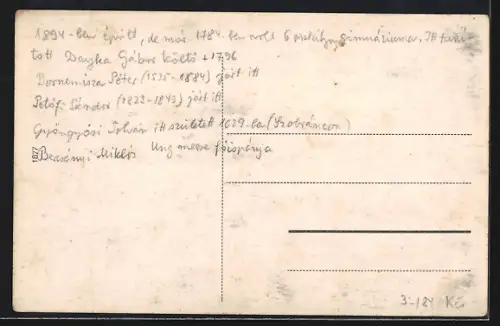 1894-ben épült, de már 1784-ben volt 6 osztályu gimnáziuma. Itt taní-
tott Dayka Gábor költő +1796
Bornemisza Péter (1535-1884) járt itt
Petőfi Sándor (1823-1849) járt itt
Gyöngyösi István itt született 1629-ba (Szobráncon)
Bercsényi Miklós Ung megye főispánja